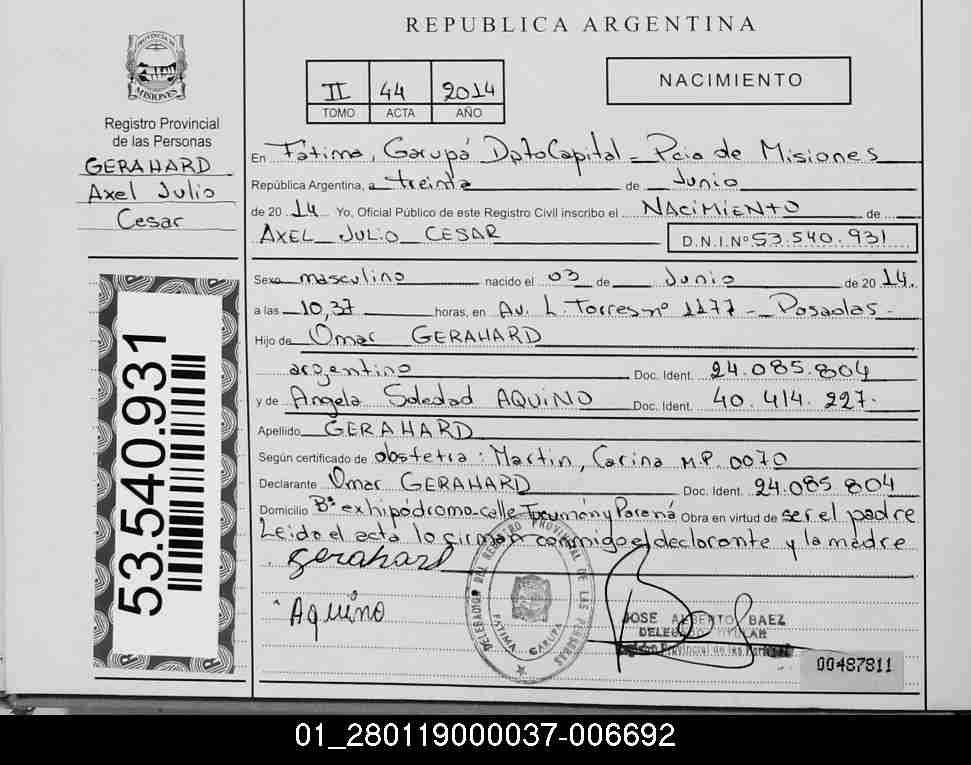 REPUBLICA ARGENTINA
PROVINCIA DE
MISIONES
Registro Provincial
de las Personas
GERAHARD
Axel Julio
Cesar
53.540.931
II 44 2014
TOMO ACTA AÑO
NACIMIENTO
En Fátima, Garupá Dpto Capital = Pcia de Misiones
República Argentina, a treinta de Junio
de 20 14 Yo, Oficial Público de este Registro Civil inscribo el NACIMIENTO de
AXEL JULIO CESAR D.N.I.Nº 53.540.931
Sexo masculino nacido el 03 de Junio de 20 14.
a las 10,37 horas, en Av. L. Torres nº 1177 - Posadas -
Hijo de Omar GERAHARD
argentino Doc. Ident. 24.085.804
y de Angela Soledad AQUINO Doc. Ident. 40.414.227.
Apellido GERAHARD
Según certificado de obstetra: Martin, Carina M.P. 0070
Declarante Omar GERAHARD Doc. Ident. 24.085.804
Domicilio Bº ex hipódromo-calle Tucumán y Paraná Obra en virtud de ser el padre
Leida el acta la firman conmigo el declarante y la madre
gerahard
Aquino
DELEGACION DEL REGISTRO PROVINCIAL DE LAS PERSONAS
FATIMA GARUPA
JOSE ALBERTO BAEZ
DELEGADO TITULAR
Registro Provincial de las Personas
00487811
01_280119000037-006692